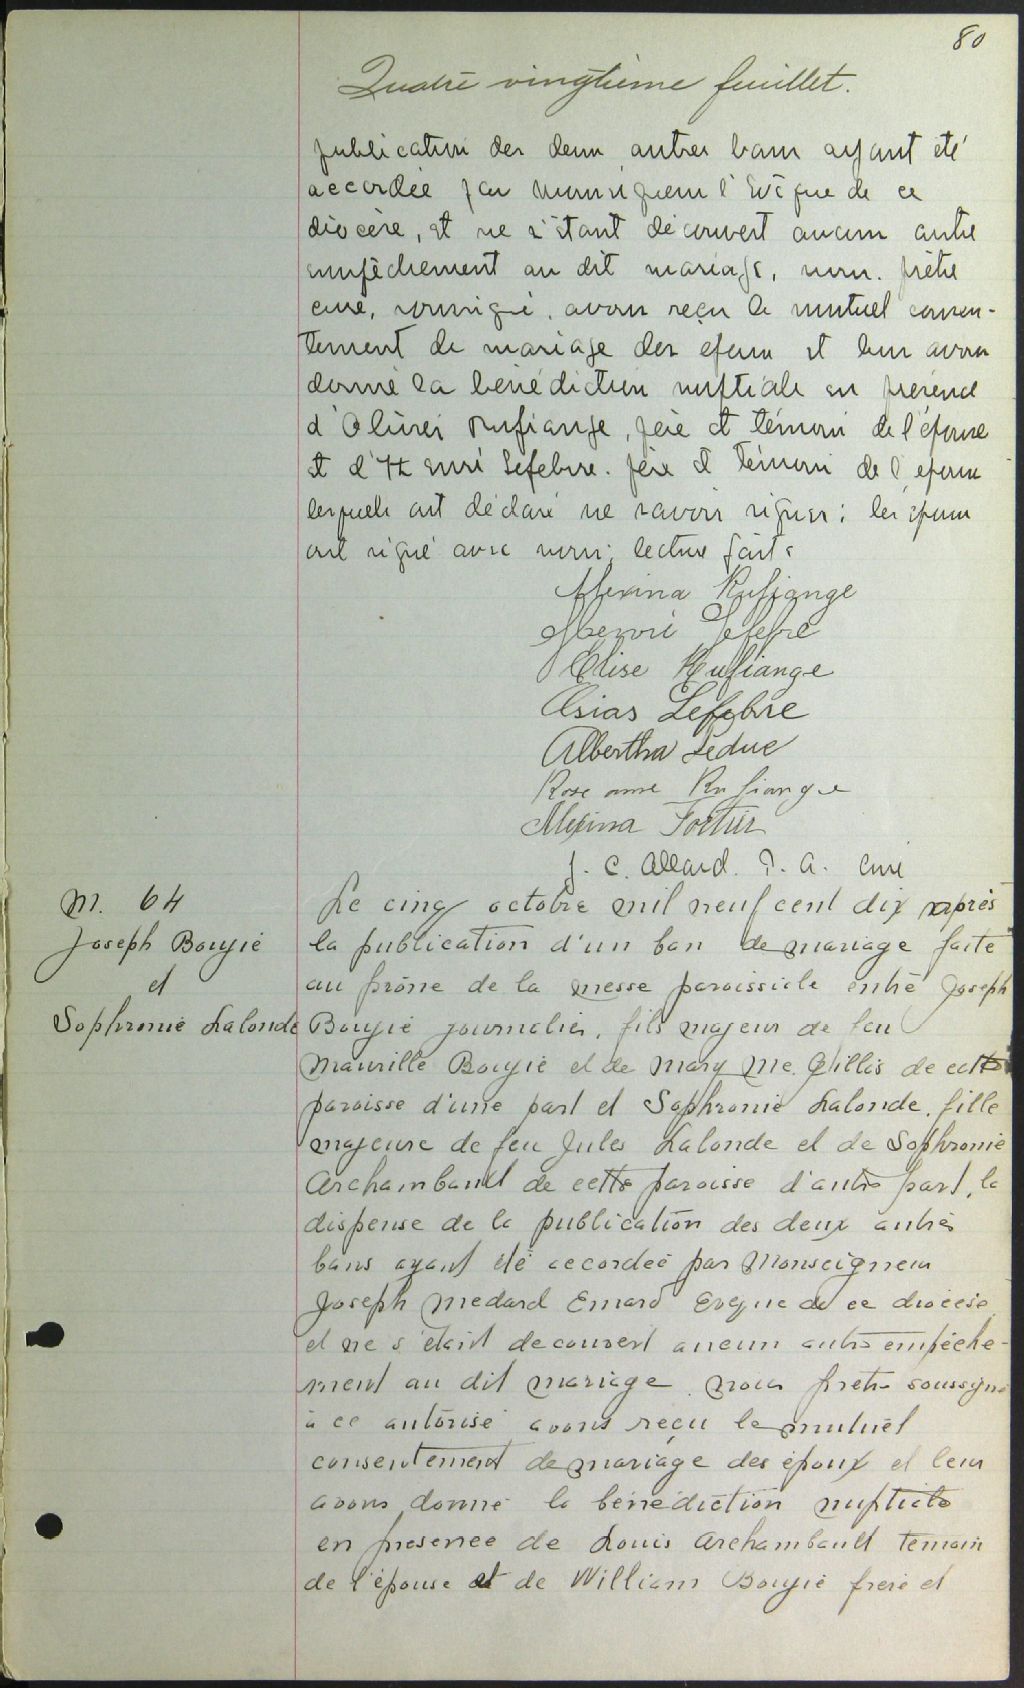 80
Quatre vingtième feuillet.
publication des deux autres bans ayant été
accordée par Monseigneur l'Evêque de ce
diocèse, et ne s'étant découvert aucun autre
empêchement au dit mariage, nous, prêtre
curé, soussigné, avons reçu le mutuel consen-
tement de mariage des époux et leur avons
donné la bénédiction nuptiale en présence
d'Olivier Rufiange, père et témoin de l'épouse
et d'Henri Lefebvre, père et témoin de l'époux
lesquels ont déclaré ne savoir signer; les époux
ont signé avec nous; lecture faite
Mexina Rufiange
Henri Lefebre
Elise Rufiange
Osias Lefebvre
Albertha Leduc
Rose anne Rufiange
Mexina Fortier
J. C. Allard. P. A. curé
M. 64
Joseph Bougie
et
Sophronie Lalonde
Le cinq octobre mil neuf cent dix après
la publication d'un ban de mariage faite
au prône de la messe paroissiale entre Joseph
Bougie journalier, fils majeur de feu
Maurille Bougie et de Mary Mc. Gillis de cette
paroisse d'une part et Sophronie Lalonde, fille
majeure de feu Jules Lalonde et de Sophronie
Archambault de cette paroisse d'autre part, la
dispense de la publication des deux autres
bans ayant été accordée par Monseigneur
Joseph Medard Emard Evêque de ce diocèse
et ne s'étant découvert aucun autre empêche-
ment au dit mariage, nous prêtre soussigné
à ce autorisé avons reçu le mutuel
consentement de mariage des époux et leur
avons donné la bénédiction nuptiale
en présence de Louis Archambault témoin
de l'épouse et de William Bougie frère et